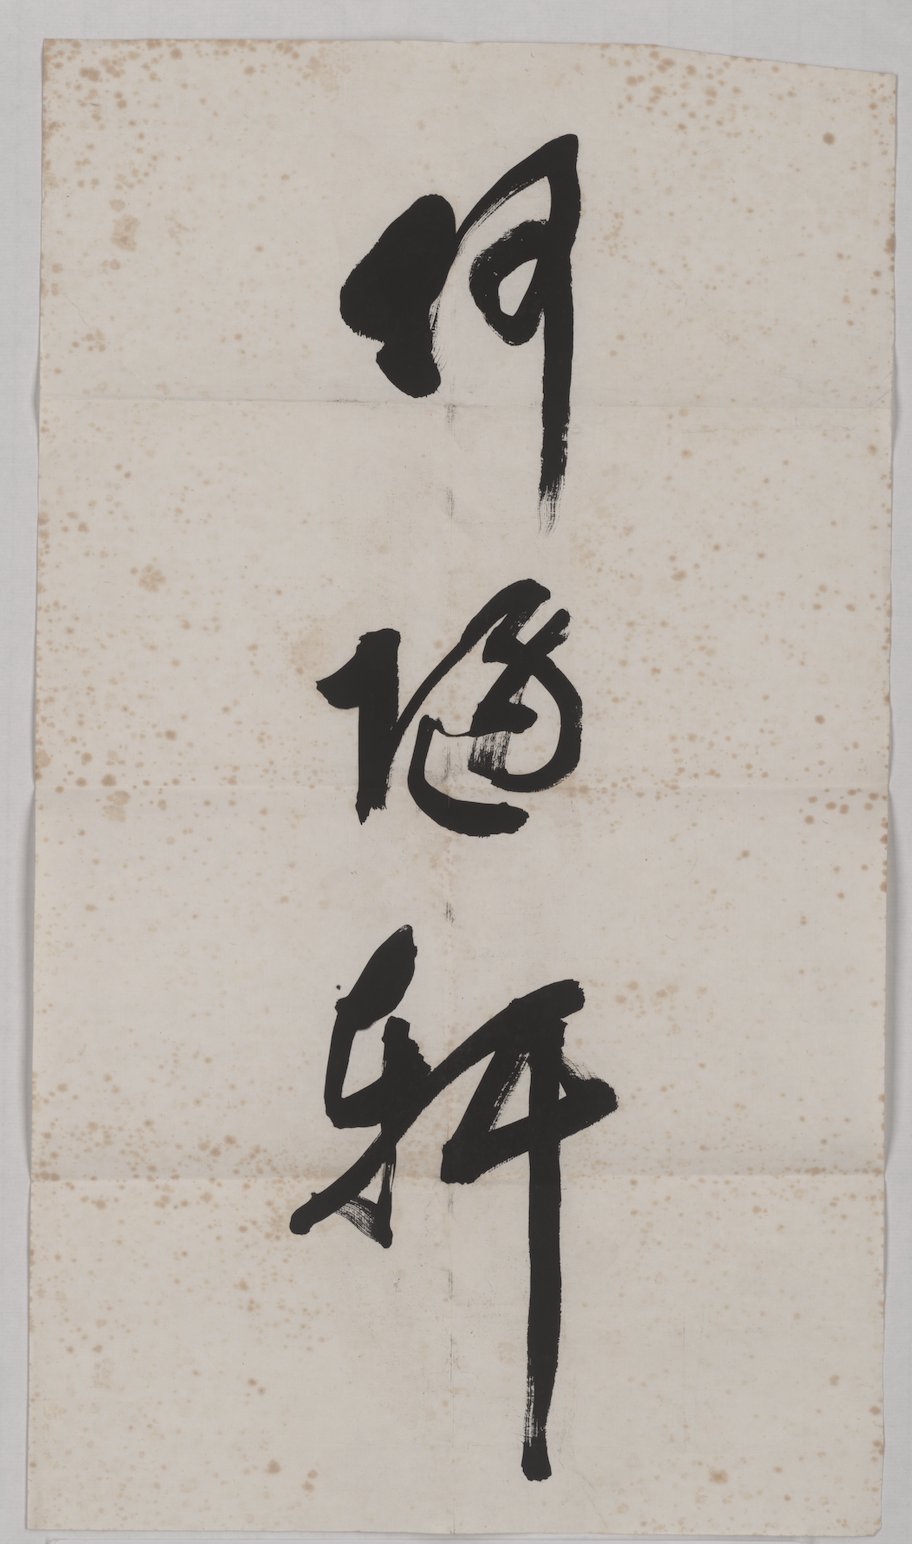 何陋軒